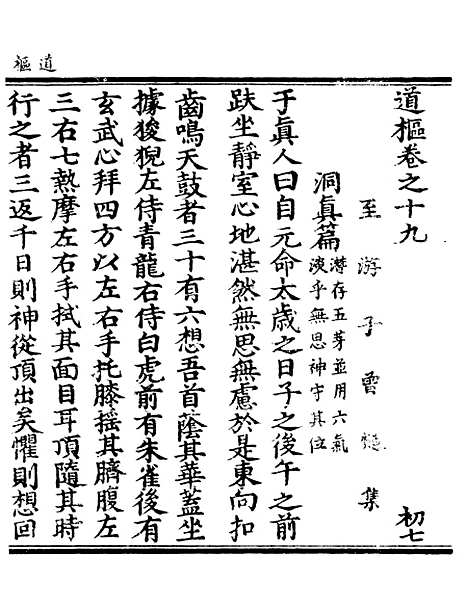 道樞
道樞卷之十九 初七
至游子曾慥集
洞真篇 潛存五芽並用六氣
淡乎無思神守其位
于真人曰自元命太歲之日子之後午之前
趺坐靜室心地湛然無思無慮於是東向扣
齒鳴天鼓者三十有六想吾首蔭其華蓋坐
據狻猊左侍青龍右侍白虎前有朱雀後有
玄武心拜四方以左右手托膝搖其臍腹左
三右七熱摩左右手拭其面目耳頂隨其時
行之者三返千日則神從頂出矣懼則想回